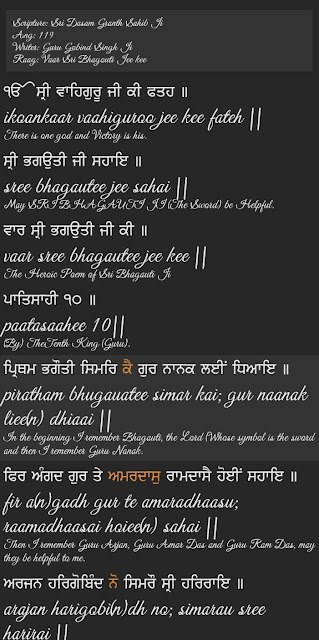 Scripture: Sri Dasam Granth Sahib Ji
Ang: 119
Writer: Guru Gobind Singh Ji
Raag: Vaar Sri Bhagouti Jee kee
ੴ ਸ੍ਰੀ ਵਾਹਿਗੁਰੂ ਜੀ ਕੀ ਫਤਹ ॥
ikoankaar vaahiguroo jee kee fateh ||
There is one god and Victory is his.
ਸ੍ਰੀ ਭਗਉਤੀ ਜੀ ਸਹਾਇ ॥
sree bhagautee jee sahai ||
May SRI BHAGAUTI JI (The Sword) be Helpful.
ਵਾਰ ਸ੍ਰੀ ਭਗਉਤੀ ਜੀ ਕੀ ॥
vaar sree bhagautee jee kee ||
The Heroic Poem of Sri Bhagauti Ji
ਪਾਤਿਸਾਹੀ ੧੦ ॥
paatasaahee 10||
(By) TheTenth King (Guru).
ਪ੍ਰਿਥਮ ਭਗੌਤੀ ਸਿਮਰਿ ਕੈ ਗੁਰ ਨਾਨਕ ਲਈਂ ਧਿਆਇ ॥
piratham bhugauatee simar kai; gur naanak
liee(n) dhiaai ||
In the beginning I remember Bhagauti, the Lord (Whose symbol is the sword
and then I remember Guru Nanak.
ਫਿਰ ਅੰਗਦ ਗੁਰ ਤੇ ਅਮਰਦਾਸੁ ਰਾਮਦਾਸੈ ਹੋਈਂ ਸਹਾਇ ॥
fir a(n)gadh gur te amaradhaasu;
raamadhaasai hoiee(n) sahai ||
Then I remember Guru Arjan, Guru Amar Das and Guru Ram Das, may
they be helpful to me.
ਅਰਜਨ ਹਰਿਗੋਬਿੰਦ ਨੋ ਸਿਮਰੌ ਸ੍ਰੀ ਹਰਿਰਾਇ ॥
arajan harigobi(n)dh no; simarau sree
harirai ||